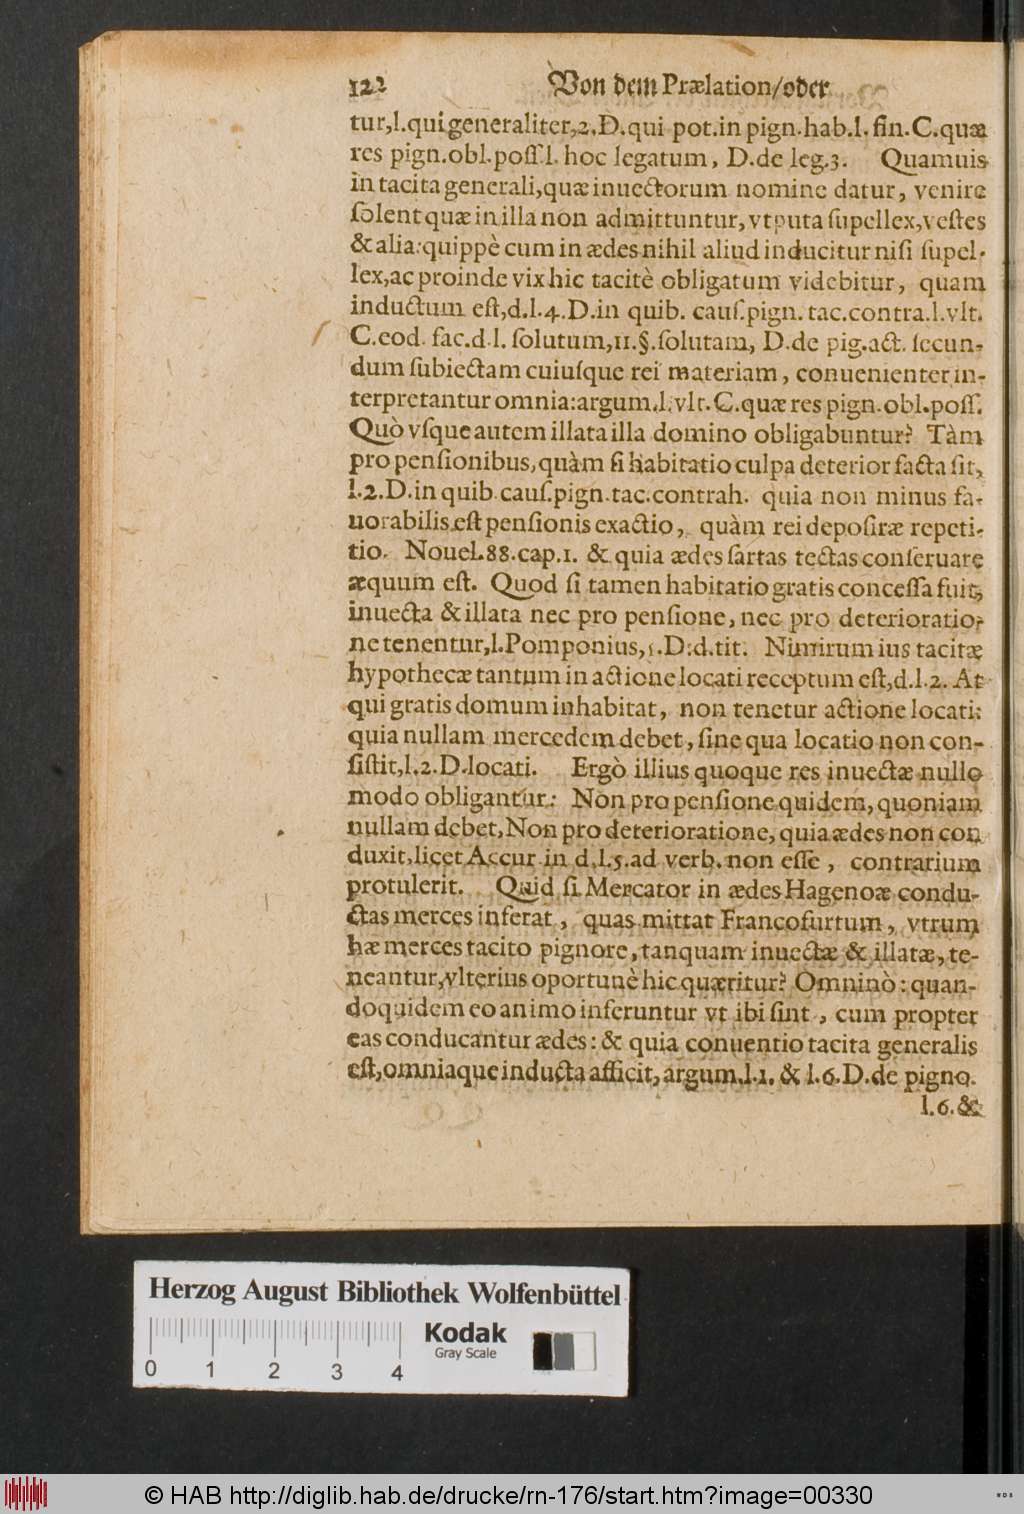 122 Von dem Prælation/oder
tur,l.qui generaliter,2.D.qui pot.in pign.hab.l.fin.C.quæ
res pign.obl.poſſ.l. hoc legatum, D.de leg.3. Quamuis
in tacita generali,quæ inuectorum nomine datur, venire
ſolent quæ in illa non admittuntur, vt puta ſupellex,veſtes
& alia: quippè cum in ædes nihil aliud inducitur niſi ſupel-
lex,ac proinde vix hic tacitè obligatum videbitur, quam
inductum eſt,d.l.4.D.in quib. cauſ.pign. tac.contra.l.vlt.
C.eod. fac.d.l. ſolutum,11.§.ſolutam, D.de pig.act. ſecun-
dum ſubiectam cuiuſque rei materiam, conuenienter in-
terpretantur omnia:argum.l.vlt.C.quæ res pign.obl.poſſ.
Quò vſque autem illata illa domino obligabuntur? Tàm
pro penſionibus,quàm ſi habitatio culpa deterior facta ſit,
l.2.D.in quib.cauſ.pign.tac.contrah. quia non minus fa-
uorabilis eſt penſionis exactio, quàm rei depoſitæ repeti-
tio. Nouel.88.cap.1. & quia ædes ſartas tectas conſeruare
æquum eſt. Quod ſi tamen habitatio gratis conceſſa fuit,
inuecta & illata nec pro penſione, nec pro deterioratio-
ne tenentur,l.Pomponius,5.D.d.tit. Nimirum ius tacitæ
hypothecæ tantum in actione locati receptum eſt,d.l.2. At
qui gratis domum inhabitat, non tenetur actione locati:
quia nullam mercedem debet, ſine qua locatio non con-
ſiſtit,l.2.D.locati. Ergò illius quoque res inuectæ nullo
modo obligantur: Non pro penſione quidem, quoniam
nullam debet,Non pro deterioratione, quia ædes non con
duxit,licet Accur.in d.l.5.ad verb.non eſſe, contrarium
protulerit. Quid ſi Mercator in ædes Hagenoæ condu-
ctas merces inferat, quas mittat Francofurtum, vtrum
hæ merces tacito pignore, tanquam inuectæ & illatæ, te-
neantur,vlterius oportunè hic quæritur? Omninò: quan-
doquidem eo animo inferuntur vt ibi ſint, cum propter
eas conducantur ædes: & quia conuentio tacita generalis
eſt,omniaque inducta afficit, argum.l.1. & l.6.D.de pigno.
l.6.&
Herzog August Bibliothek Wolfenbüttel
Kodak
Gray Scale
0 1 2 3 4
© HAB http://diglib.hab.de/drucke/rn-176/start.htm?image=00330